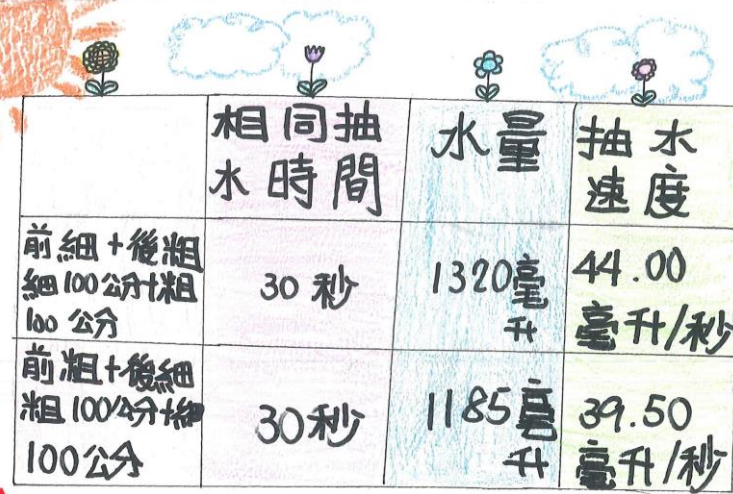 相同抽
水時間
水量
抽水
速度
前細+後粗
細100公分+粗
100公分
30秒
1320毫
升
44.00
毫升/秒
前粗+後細
粗100公分+細
100公分
30秒
1185毫
升
39.50
毫升/秒